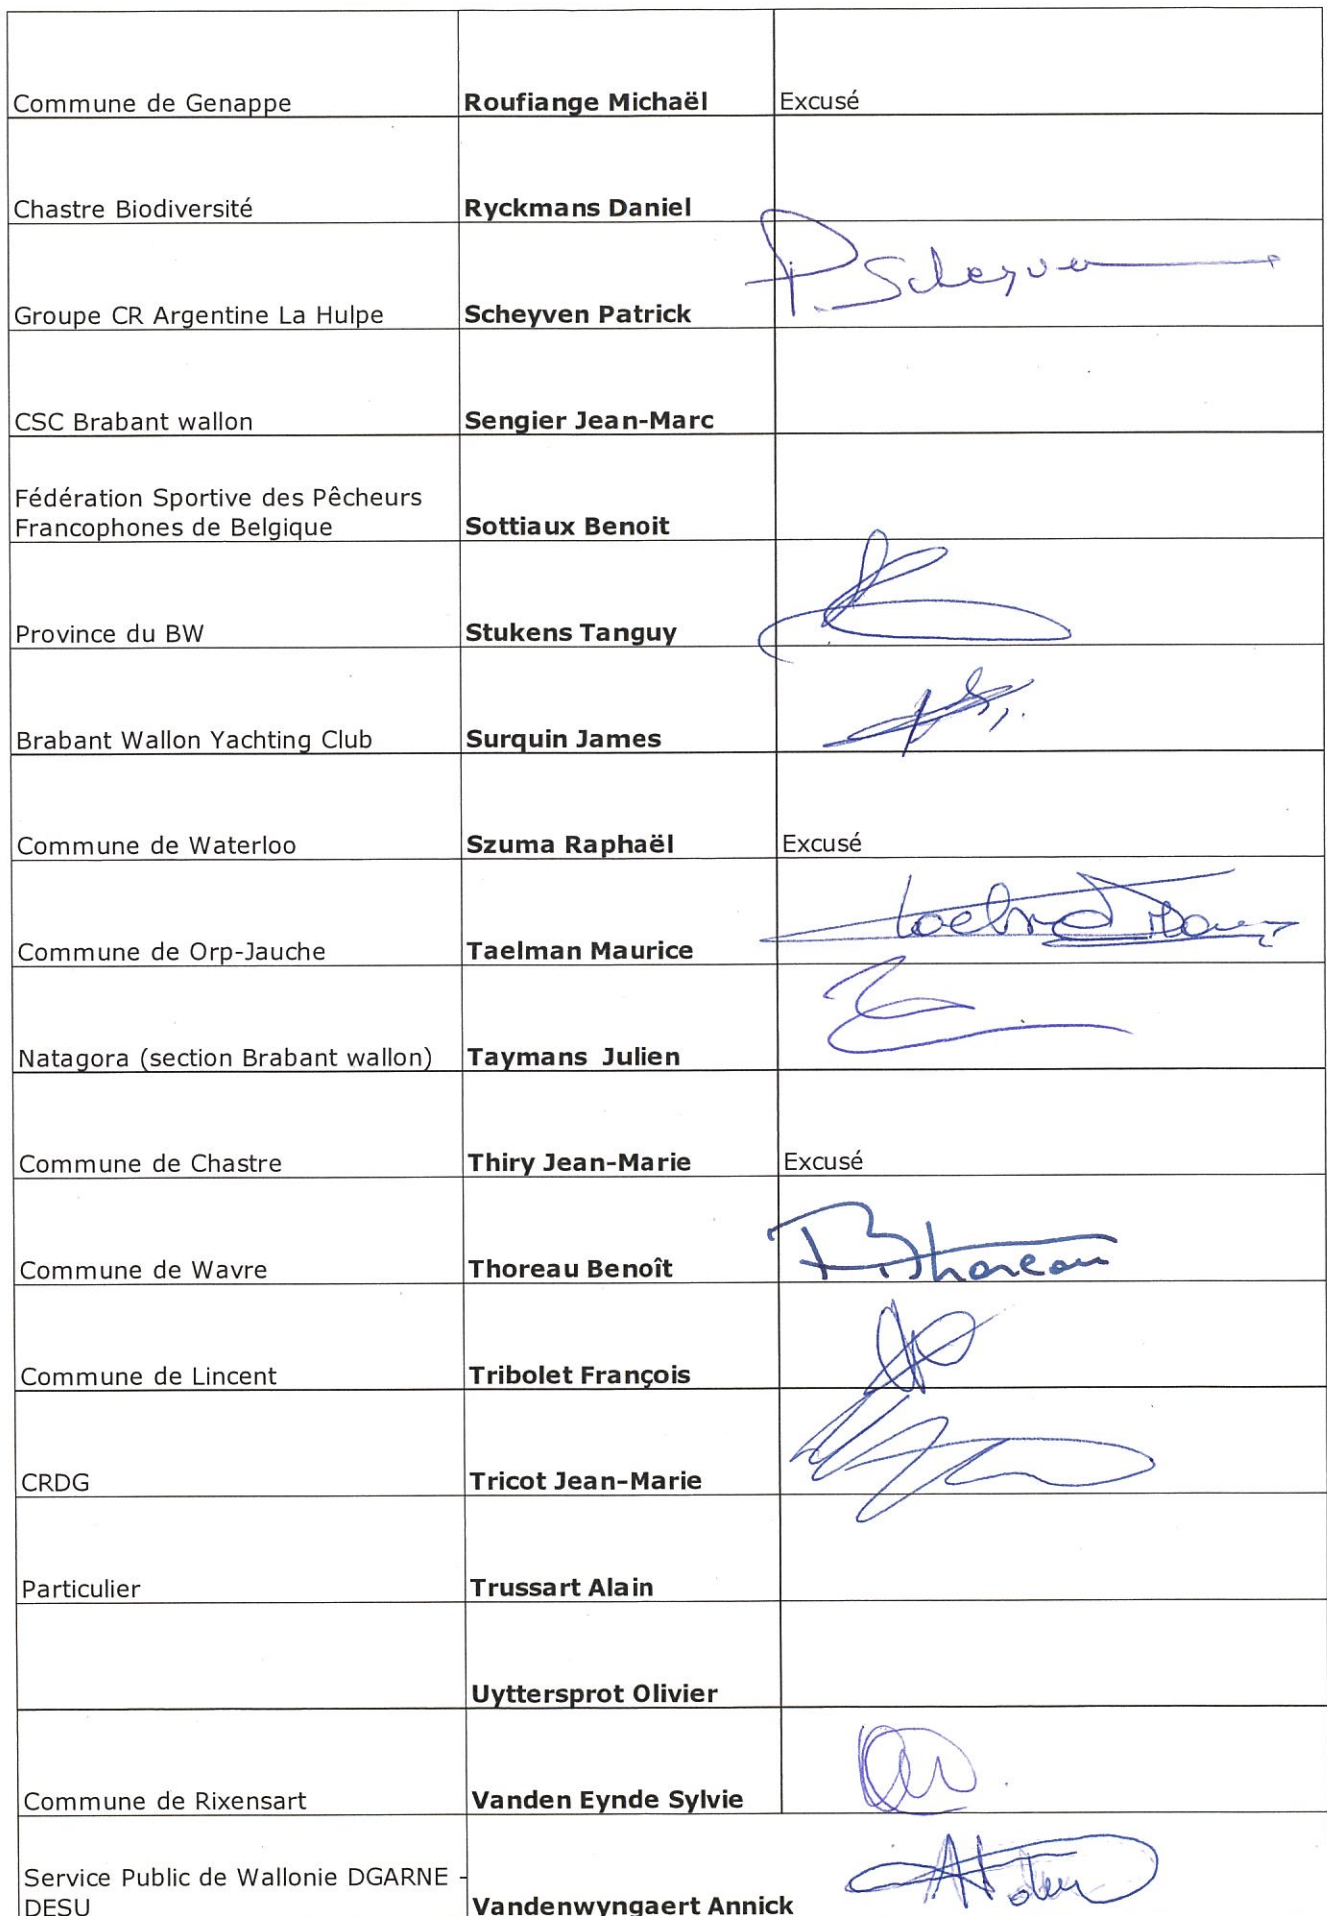 Commune de Genappe Roufiange Michaël Excusé
Chastre Biodiversité Ryckmans Daniel
Groupe CR Argentine La Hulpe Scheyven Patrick P. Scheyven
CSC Brabant wallon Sengier Jean-Marc
Fédération Sportive des Pêcheurs
Francophones de Belgique Sottiaux Benoit
Province du BW Stukens Tanguy
Brabant Wallon Yachting Club Surquin James
Commune de Waterloo Szuma Raphaël Excusé
Commune de Orp-Jauche Taelman Maurice
Natagora (section Brabant wallon) Taymans Julien
Commune de Chastre Thiry Jean-Marie Excusé
Commune de Wavre Thoreau Benoît BThoreau
Commune de Lincent Tribolet François
CRDG Tricot Jean-Marie
Particulier Trussart Alain
Uyttersprot Olivier
Commune de Rixensart Vanden Eynde Sylvie
Service Public de Wallonie DGARNE -
DESU Vandenwyngaert Annick